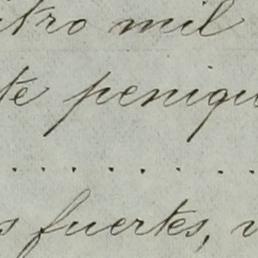 itro mil
te peniqu
. . . . . . . . .
s fuertes, v